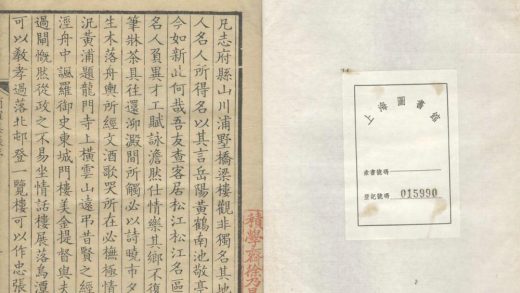 上海圖書館
索書號碼
登記號碼 015990
凡志府縣山川浦墅橋梁樓觀非獨名其地
人名人所得名以其言岳陽黃鶴南池敬亭
今如新此何哉吾友查客居松江松江名區
名人負異才工賦詠澹然仕情樂其鄉不復
筆牀茶具往還泖澱間所觸必以詩曉市夕
生木落舟輿所經文酒歌哭所在必撫極情
況黃浦題龍門寺上橫雲山遠弔昔賢之經
涇舟中諷羅御史東城門樓美金提督與夫
過閘慨然從政之不易坐情話樓展落烏潭
可以敎孝過落北邨登一覽樓可以作忠張
積學齋徐乃昌